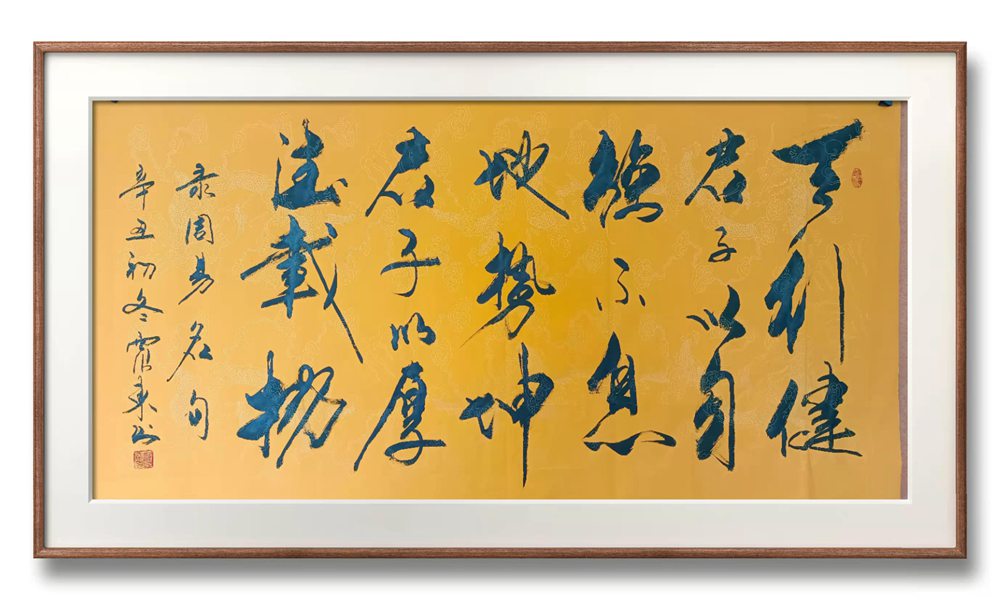 天行健
君子以自
强不息
地勢坤
君子以厚
德載物
录周易名句
辛丑初冬霍书